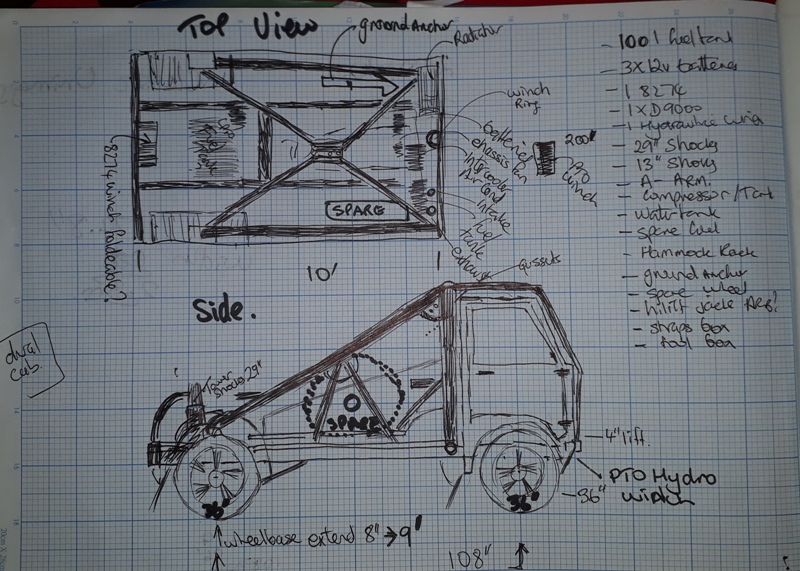 Top View
ground Anchor
Radiator
winch
Ring
batteries
chassis fan
Intercooler
Air cond
Intake
fuel
tank
exhaust
200"
PTO
winch
8274 winch foldable?
SPARE
10'
- 100 l fuel tank
- 3x12v batteries
- 1 8274
- 1 x D9000
- 1 Hydraulic winch
- 29" Shocks
- 13" Shocks
- A-ARM
- Compressor/Tank
- Water tank
- Spare fuel
- Hammock Rack
- ground Anchor
- spare wheel
- hilift jack
- straps box
- tool box
Side.
Gussets
Tower
Shocks 29"
SPARE
4" lift
PTO Hydro
Winch
36"
36"
36"
wheelbase extend 8" → 9'
108"